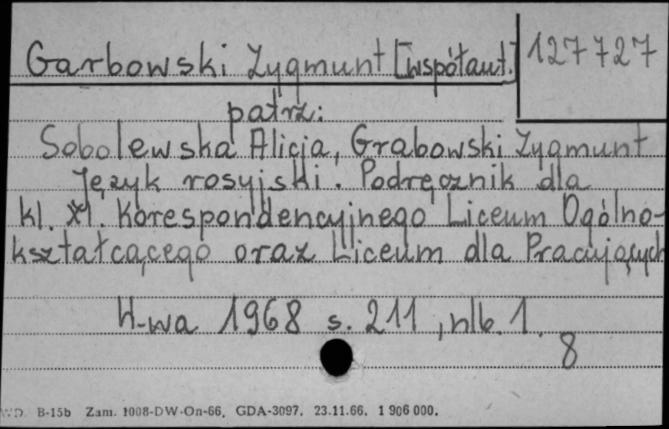 Garbowski Zygmunt [współaut.] 127727
patrz:
Sobolewska Alicja, Grabowski Zygmunt
Język rosyjski. Podręcznik dla
kl. XI. Korespondencyjnego Liceum Ogólno-
kształcącego oraz Liceum dla Pracujących
W-wa 1968 s. 211, nlb. 1.
8
WD. B-15b Zam. 1008-DW-On-66. GDA-3097. 23.11.66. 1 906 000.